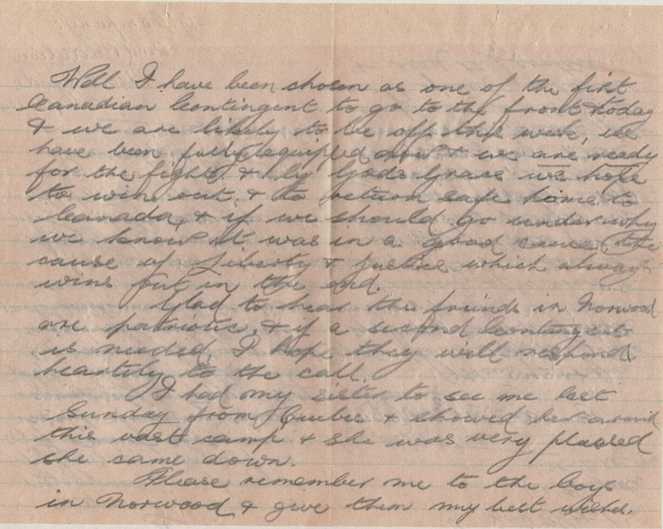 Well I have been chosen as one of the first
Canadian Contingent to go to the front today
& we are likely to be off this week, we
have been fully equipped now & we are ready
for the fight, & by Gods Grace we hope
to win out, & to return safe home to
Canada, & if we should go under why
we know it was in a good cause, the
cause of Liberty & Justice which always
wins out in the end.
Glad to hear the friends in Norwood
are patriotic, & if a second Contingent
is needed, I hope they will respond
heartily to the call.
I had my sister to see me last
Sunday from Quebec & showed her around
this vast camp & she was very pleased
she came down.
Please remember me to the boys
in Norwood & give them my best wishes.